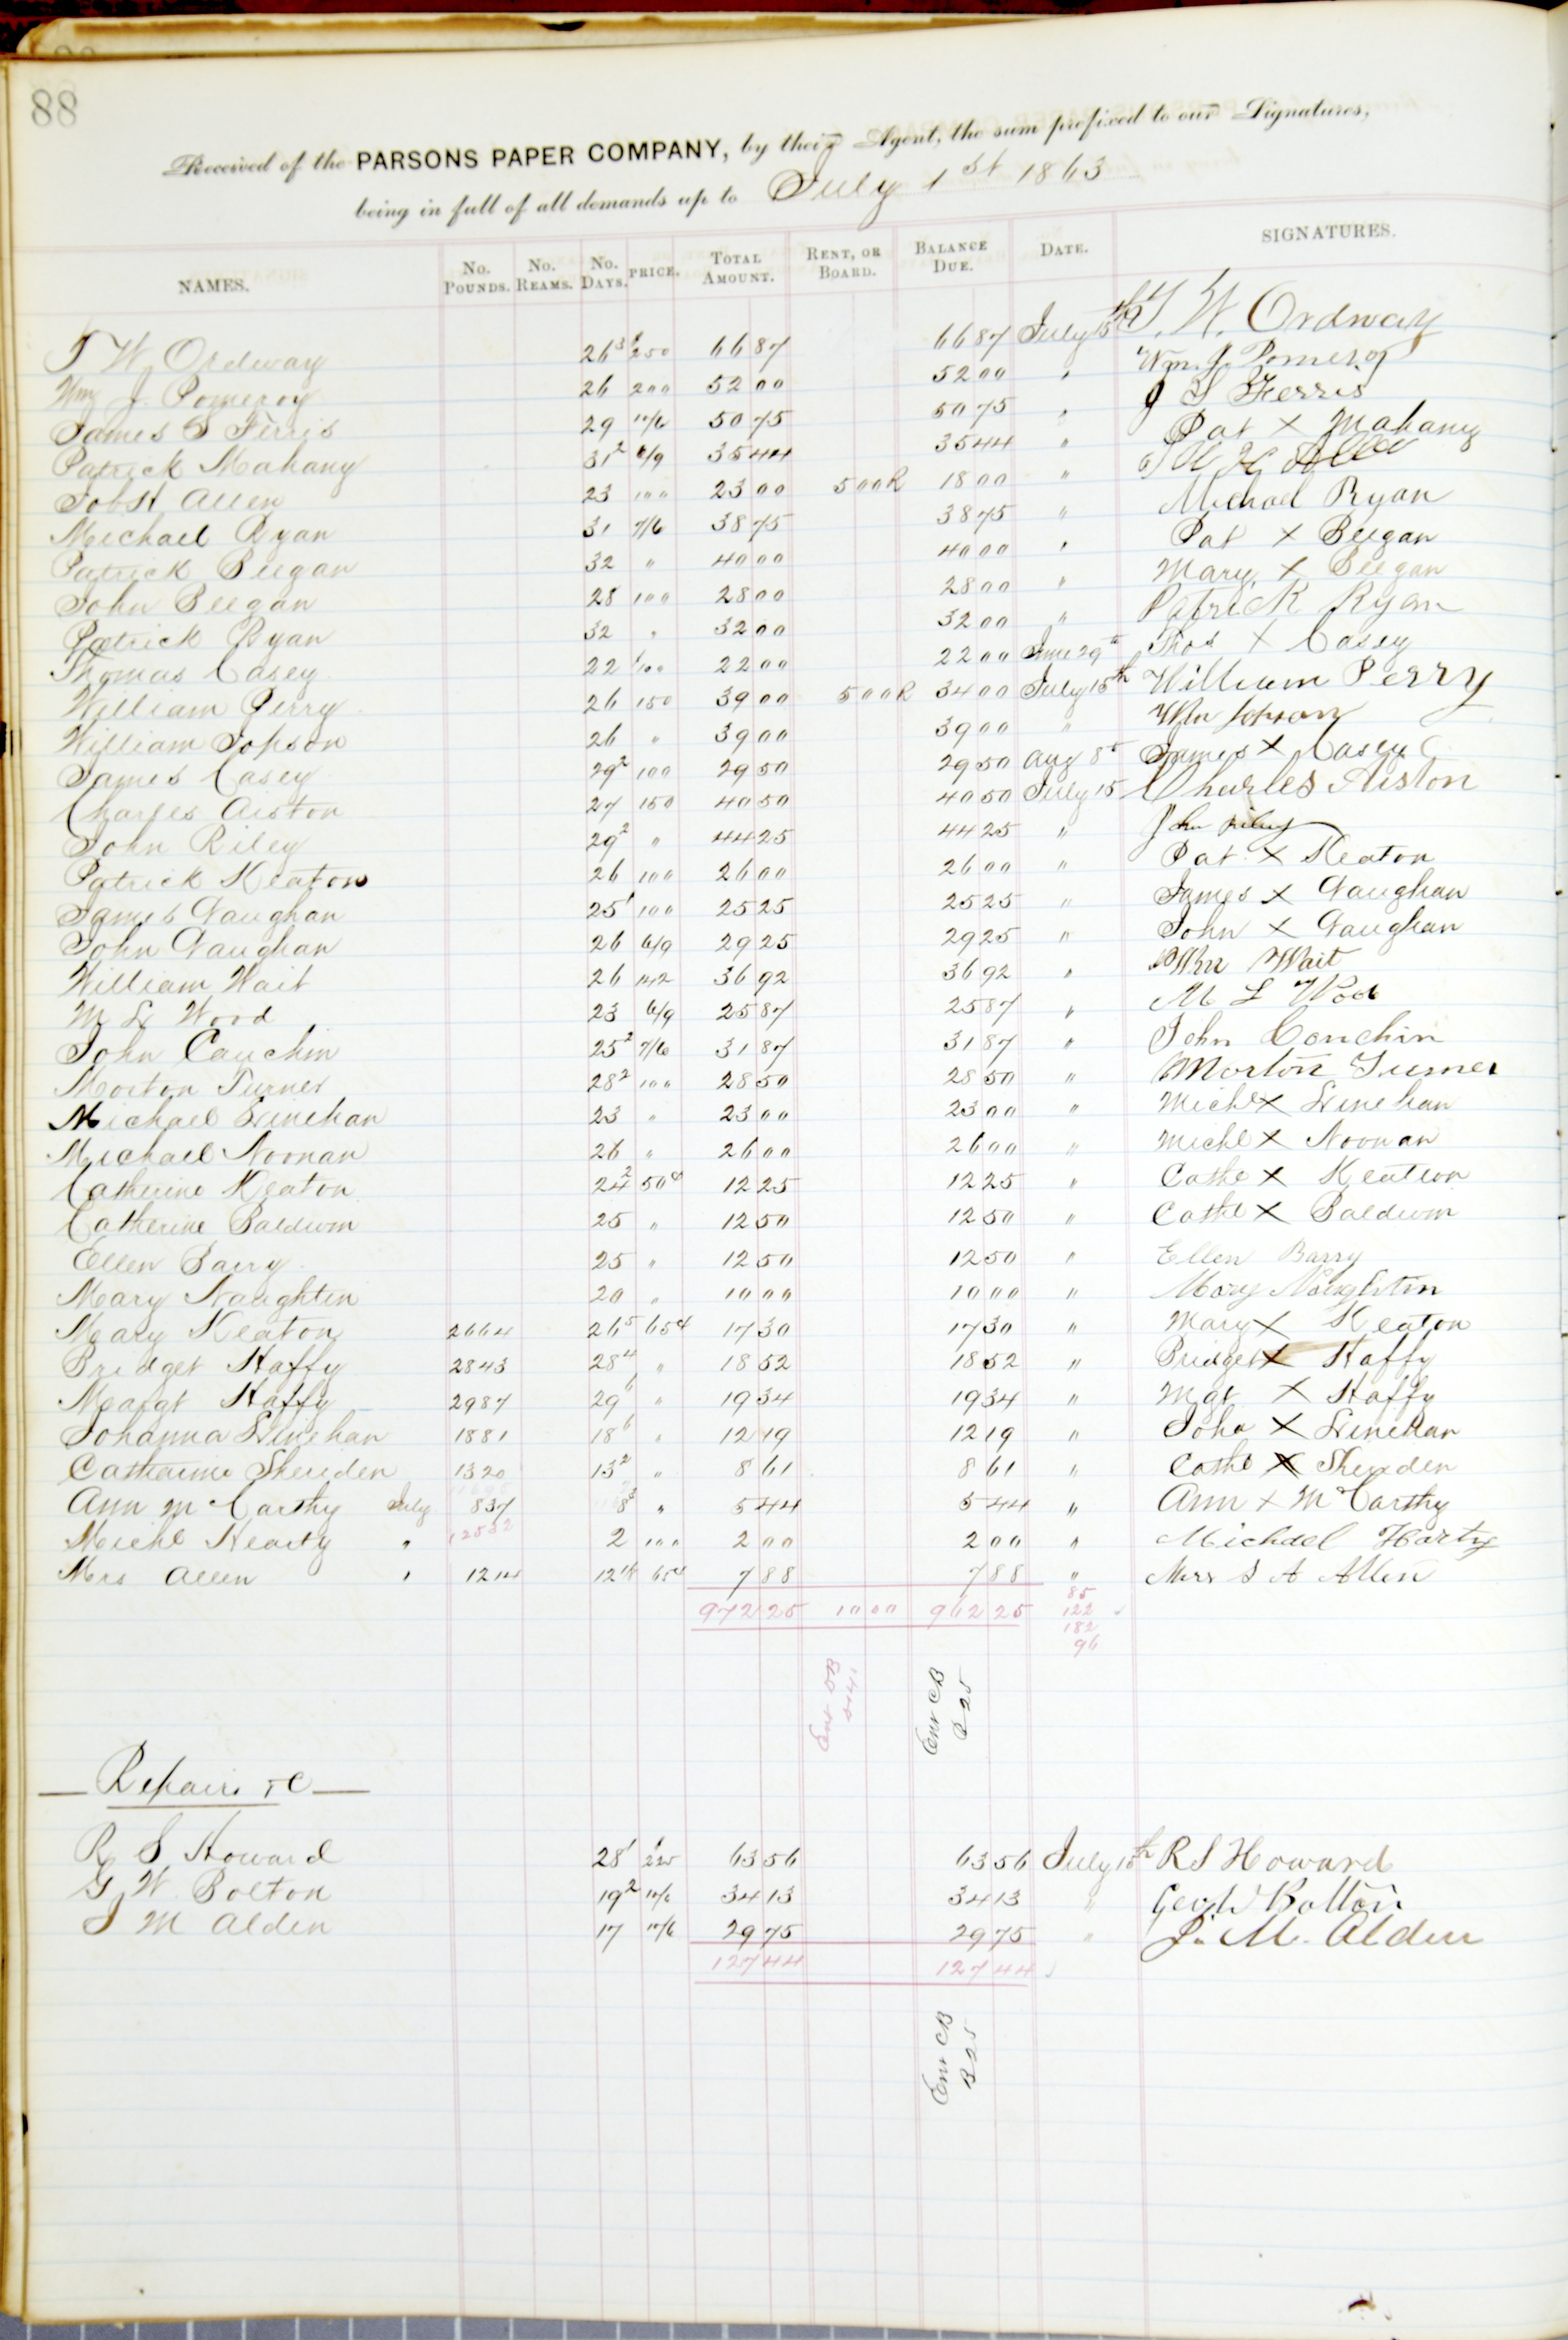 88
Received of the PARSONS PAPER COMPANY, by their Agent, the sum prefixed to our Signatures,
being in full of all demands up to July 1st 1863
NAMES. No. POUNDS. No. REAMS. No. DAYS. PRICE. TOTAL AMOUNT. RENT, OR BOARD. BALANCE DUE. DATE. SIGNATURES.
T W Ordway 26 3 250 66 87 66 87 July 15th T. W. Ordway
Wm J. Pomeroy 26 200 52 00 52 00 " Wm. J. Pomeroy
James S Ferris 29 10/6 50 75 50 75 " J S Ferris
Patrick Mahany 31 2 6/9 35 44 35 44 " Pat X Mahany
Allen 23 100 23 00 5 00 R 18 00 "
Michael Ryan 31 7/6 38 75 38 75 " Michael Ryan
Patrick Beegan 32 " 40 00 40 00 " Pat X Beegan
John Beegan 28 100 28 00 28 00 " Mary X Beegan
Patrick Ryan 32 " 32 00 32 00 " Patrick Ryan
Thomas Casey 22 100 22 00 22 00 June 29th Thos X Casey
William Perry 26 150 39 00 5 00 R 34 00 July 15th William Perry
William Jopson 26 " 39 00 39 00 " Wm Jopson
James Casey 29 2 100 29 50 29 50 Aug 8th James X Casey
Charles Aiston 27 150 40 50 40 50 July 15 Charles Aiston
John Riley 29 2 " 44 25 44 25 " John Riley
Patrick Keaton 26 100 26 00 26 00 " Pat X Keaton
James Vaughan 25 1 100 25 25 25 25 " James X Vaughan
John Vaughan 26 6/9 29 25 29 25 " John X Vaughan
William Wait 26 142 36 92 36 92 " Wm Wait
M L Wood 23 6/9 25 87 25 87 " M L Wood
John Cauchin 25 2 7/6 31 87 31 87 " John Conchin
Morton Turner 28 2 100 28 50 28 50 " Morton Turner
Michael Linehan 23 " 23 00 23 00 " Michl X Linehan
Michael Noonan 26 " 26 00 26 00 " Michl X Noonan
Catherine Keaton 24 2 50¢ 12 25 12 25 " Cathe X Keatson
Catherine Baldwin 25 " 12 50 12 50 " Cathe X Baldwin
Ellen Barry 25 " 12 50 12 50 " Ellen Barry
Mary Naughtin 20 " 10 00 10 00 " Mary Naughtin
Mary Keaton 2664 26 5 65¢ 17 30 17 30 " Mary X Keaton
Bridget Haffy 2843 28 4 " 18 52 18 52 " Bridget X Haffy
Margt Haffy 2987 29 6 " 19 34 19 34 " Mgt X Haffy
Johanna Linehan 1881 18 6 " 12 19 12 19 " Joha X Linehan
Catharine Sheriden 1320 13 2 " 8 61 8 61 " Cathe X Sheriden
Ann McCarthy July 837 8 3 " 5 44 5 44 " Ann X McCarthy
Michl Hearty " 12532 2 100 2 00 2 00 " Michael Harty
Mrs Allen " 1214 12 65¢ 7 88 7 88 " Mrs S A Allen
972 25 10 00 962 25
85
122
182
96
Ent CB B 25
Repairs &C
R S Howard 28 1 225 63 56 63 56 July 15th R S Howard
G W Bolton 19 2 10/6 34 13 34 13 " Geo W Bolton
J M Alden 17 10/6 29 75 29 75 " J. M. Alden
127 44 127 44
Ent CB B 25